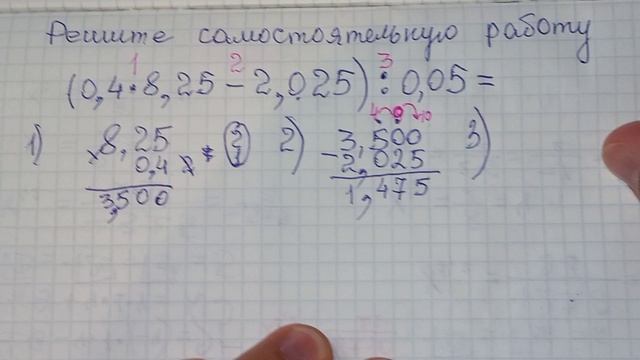 Решите самостоятельную работу
1 2 3
(0,4 · 8,25 − 2,025) : 0,05 =
1) 8,25 2) 3,500 3)
× 0,4 − 2,025
3,500 1,475